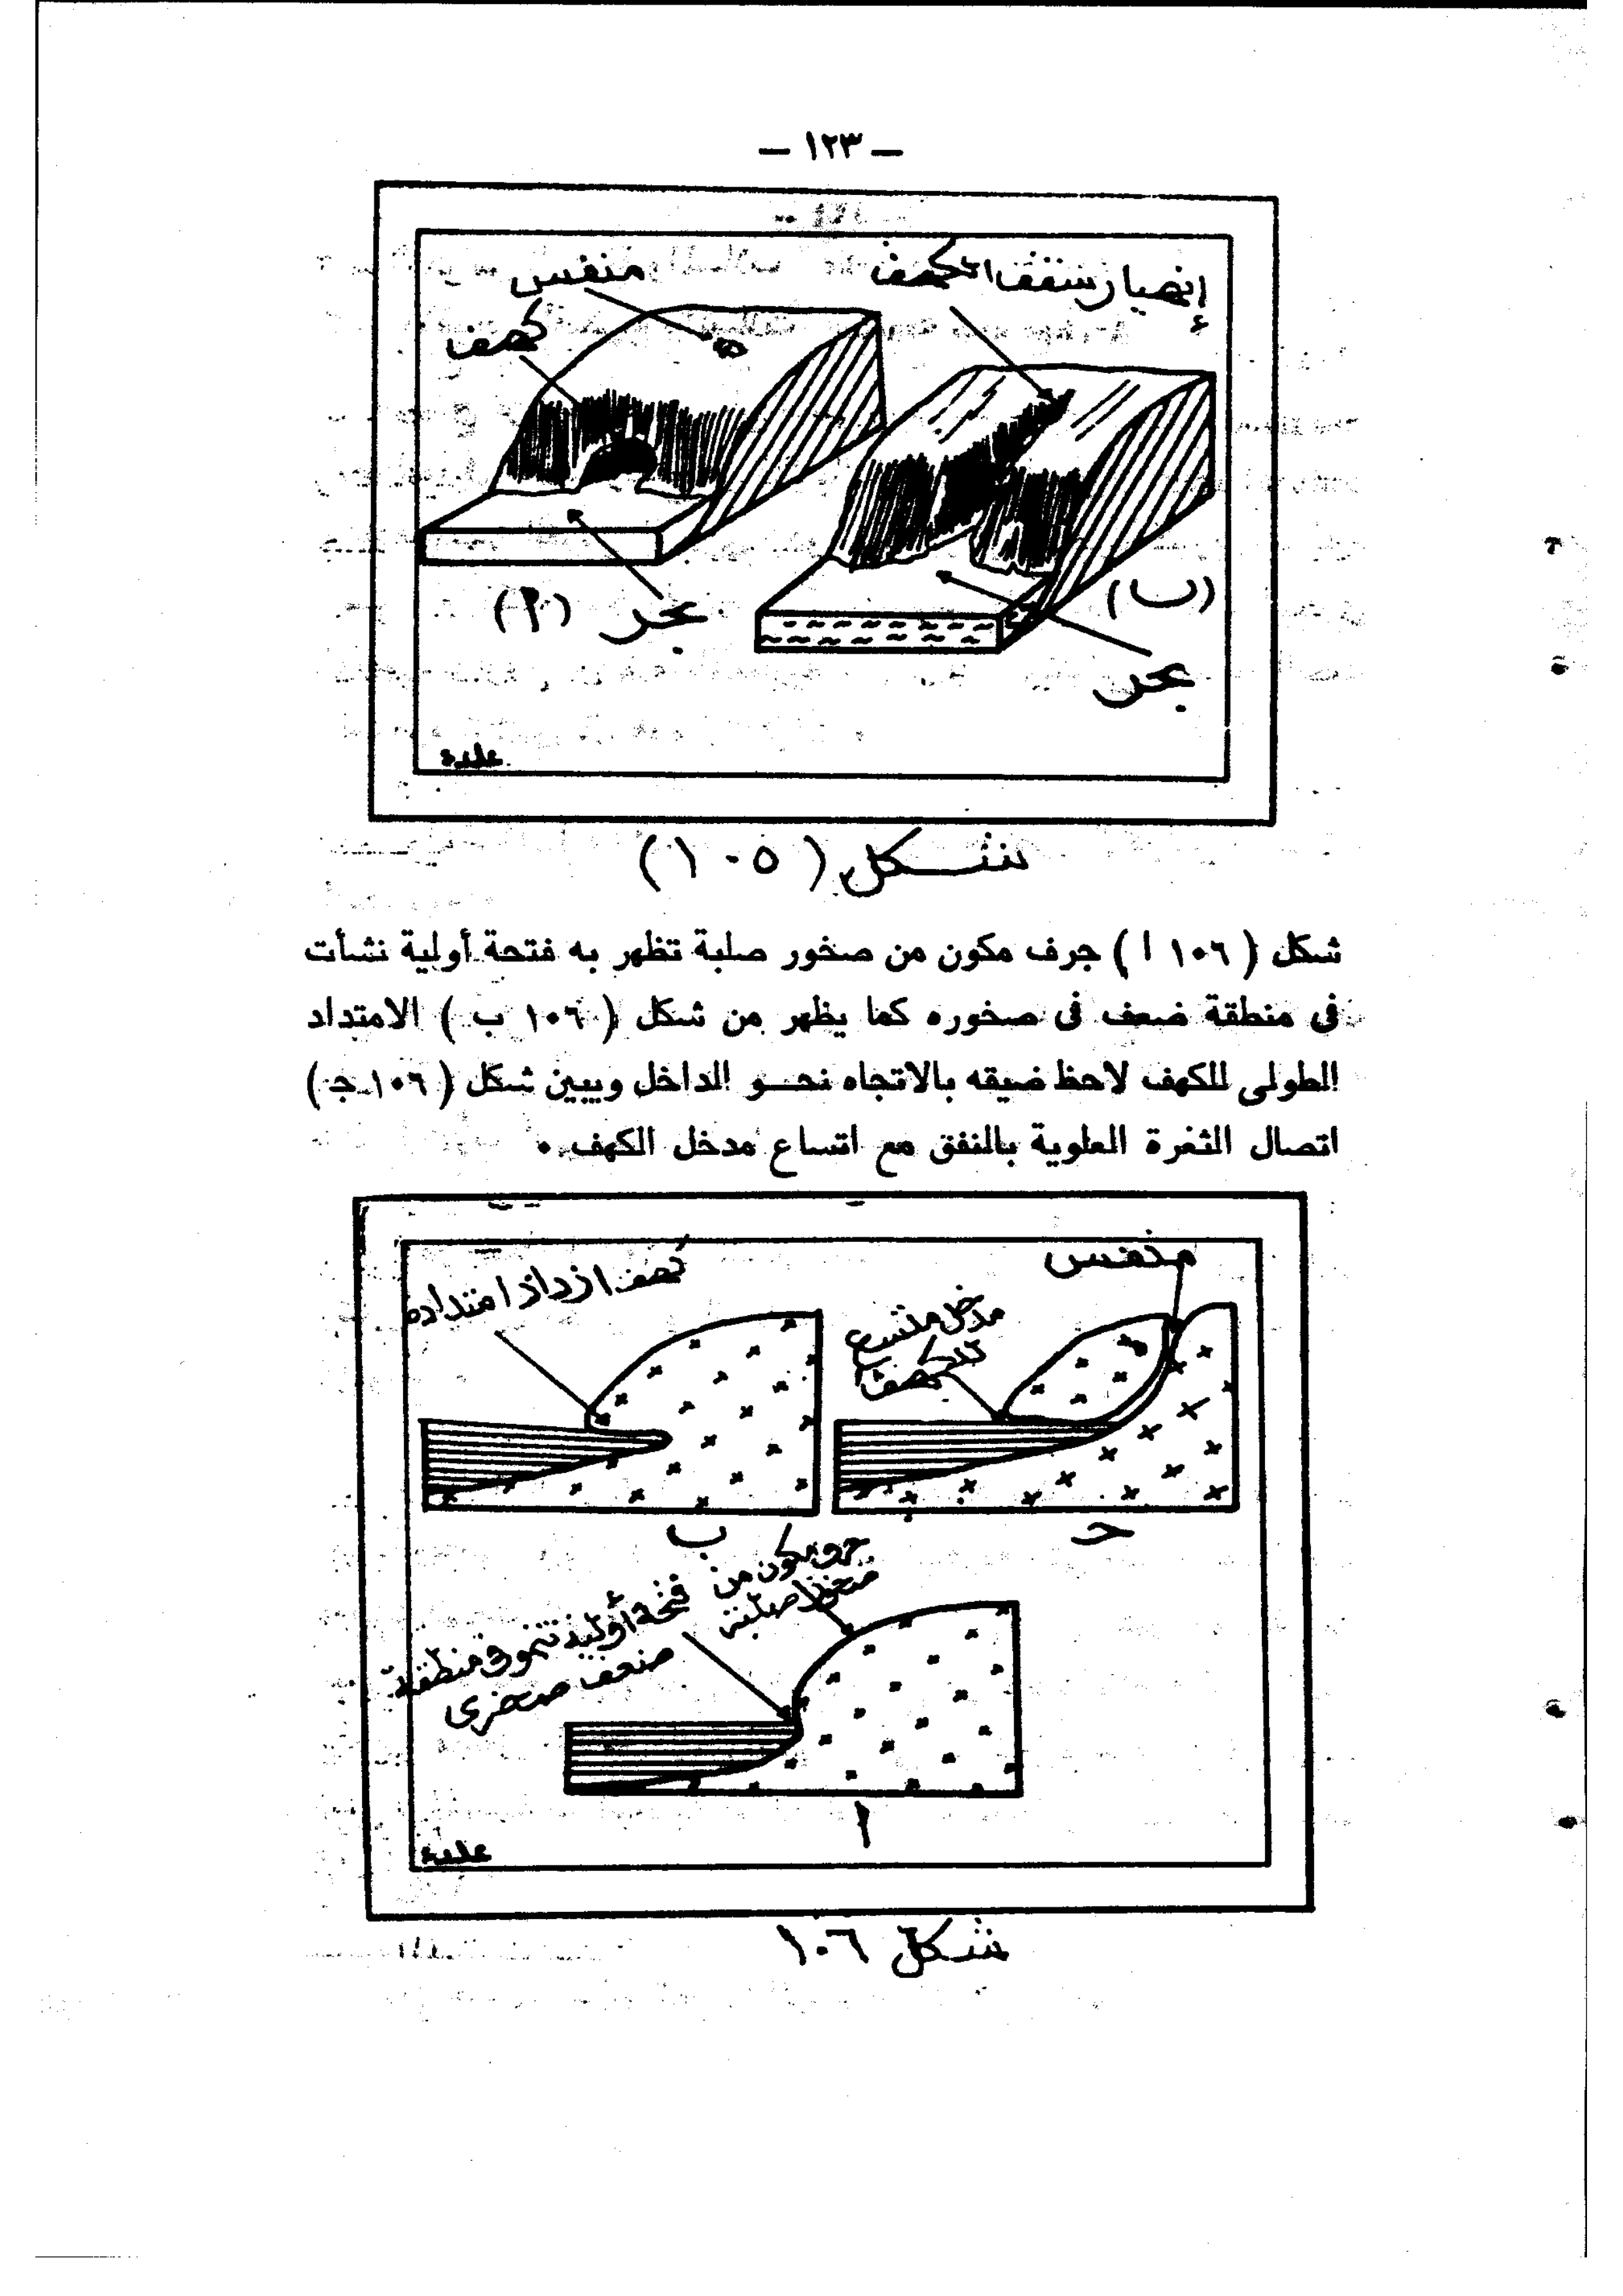 — ١٢٣ —
إنهيار سقف الكهف
منفس
كهف
بحر
(أ)
(ب)
بحر
شكل (١٠٥)
شكل ( ١٠٦ ا ) جرف مكون من صخور صلبة تظهر به فتحة أولية نشأت
فى منطقة ضعف فى صخوره كما يظهر من شكل ( ١٠٦ ب ) الامتداد
الطولى للكهف لاحظ ضيقه بالاتجاه نحو الداخل ويبين شكل ( ١٠٦ جـ )
اتصال الثغرة العلوية بالنفق مع اتساع مدخل الكهف ٠
منفس
مدخل متسع
للكهف
كهف ازداد امتداده
حـ
ب
جرف مكون من
صخور صلبة
فتحة أولية تنمو فى منطقة
ضعف صخرى
ا
شكل ١٠٦